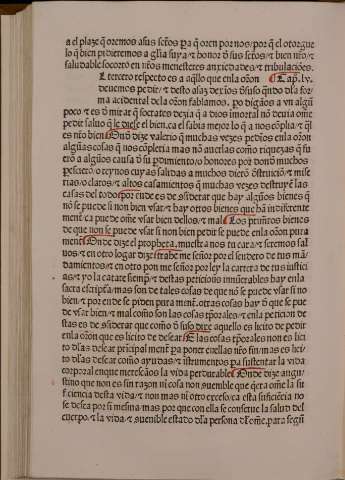 a el plaze q̃ oremos a sus sctõs pa q̃ oren por nos/ por q̃ el otorgue
lo q̃ bien pidieremos a glia suya/⁊ honor ð sus sctõs/⁊ bien nr̃o/⁊
saludable socorro en nr̃os menesteres anxiedades/⁊ tribulaciões.
El tercero respecto es a aq̃llo que enla oñon ¶ Cap. lv.
deuemos pedir/⁊ desto asaz dexios ð suso q̃ndo dla for
ma acidental dela oñon fablamos. po digãos a vn algũ
poco/⁊ es ð mirar q̃ socrates dezia q̃ a dios imortal nõ deuia ome
pedir saluo q̃ le diese el bien. ca el sabia mejor lo q̃ a nos cõplia/⁊ q̃l
es nr̃o bien. Onð dize valerio q̃ muchas vezes pedios enla oñon
algũas cosas q̃ nos cõpleria mas nõ auerlas como riquezas q̃ fu
erõ a algũos causa ð su pdimiento/o honores por donð muchos
pescierõ. o reynos cuyas salidas a muchos dierõ ðstruiciõ/⁊ mise
rias/o claros/⁊ altos casamientos q̃ muchas vezes destruyẽ las
casas del todo. por ende es de ɔsiderar que hay algũos bienes q̃
nõ se puede si non bien vsar/⁊ hay otros bienes que hã indiferente
ment̃. ca puede ome vsar bien dellos/⁊ mal. Los prim̃os bienes
de que non se puede vsar si non bien pedir se puede enla oñon pura
ment̃. Onð dize el propheta. muestra nos tu cara/⁊ seremos sal
uos/⁊ en otro logar dize trabe me señor por el sendero de tus mã
damientos/⁊ en otro pon me señor por ley la carrera de tus iustici
as/⁊ yo la catare siemp̃/⁊ destas peticiões inumerables hay enla
sacra escript̃a/ mas son de tales cosas de que nõ se puede vsar si no
bien/⁊ por en de se piden pura ment̃. otras cosas hay ð que se pue
de vsar bien/⁊ mal como son las cosas tp̃orales/⁊ enla peticion de
stas es de ɔsiderar que como ð suso dize aquello es licito de pedir
enla oñon que es licito de desear. E las cosas tp̃orales non es lici
to dlas desear principal ment̃ pa poner en ellas nr̃o fin/ mas es lici
to dlas desear como ayudas/⁊ istrumentos pa sustentar la vida
corporal en que merescãos la vida perdurable. Onde dize augu
stino que non es sin razon ni cosa non ɔuenible que q̃era ome la suf
ficiencia desta vida/⁊ non mas ni otro excelso/ca esta suficiẽcia no
se desea por si mesma/mas por que con ella se conserue la salud del
cuerpo/⁊ la vida/⁊ ɔuenible estado dla persona dl ome. para segũ